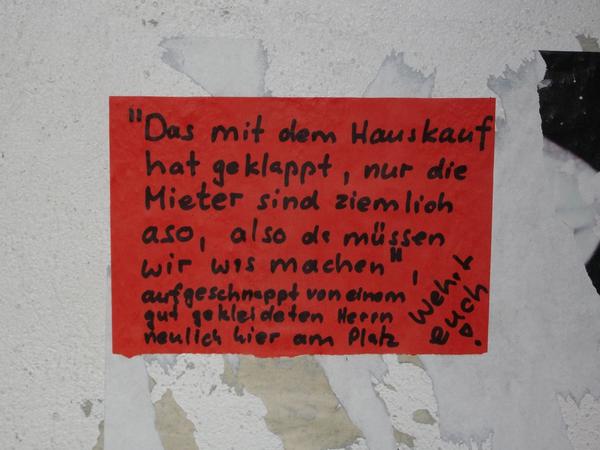 "Das mit dem Hauskauf
hat geklappt, nur die
Mieter sind ziemlich
aso, also da müssen
wir was machen",
aufgeschnappt von einem
gut gekleideten Herrn
neulich hier am Platz
Wehrt
euch!